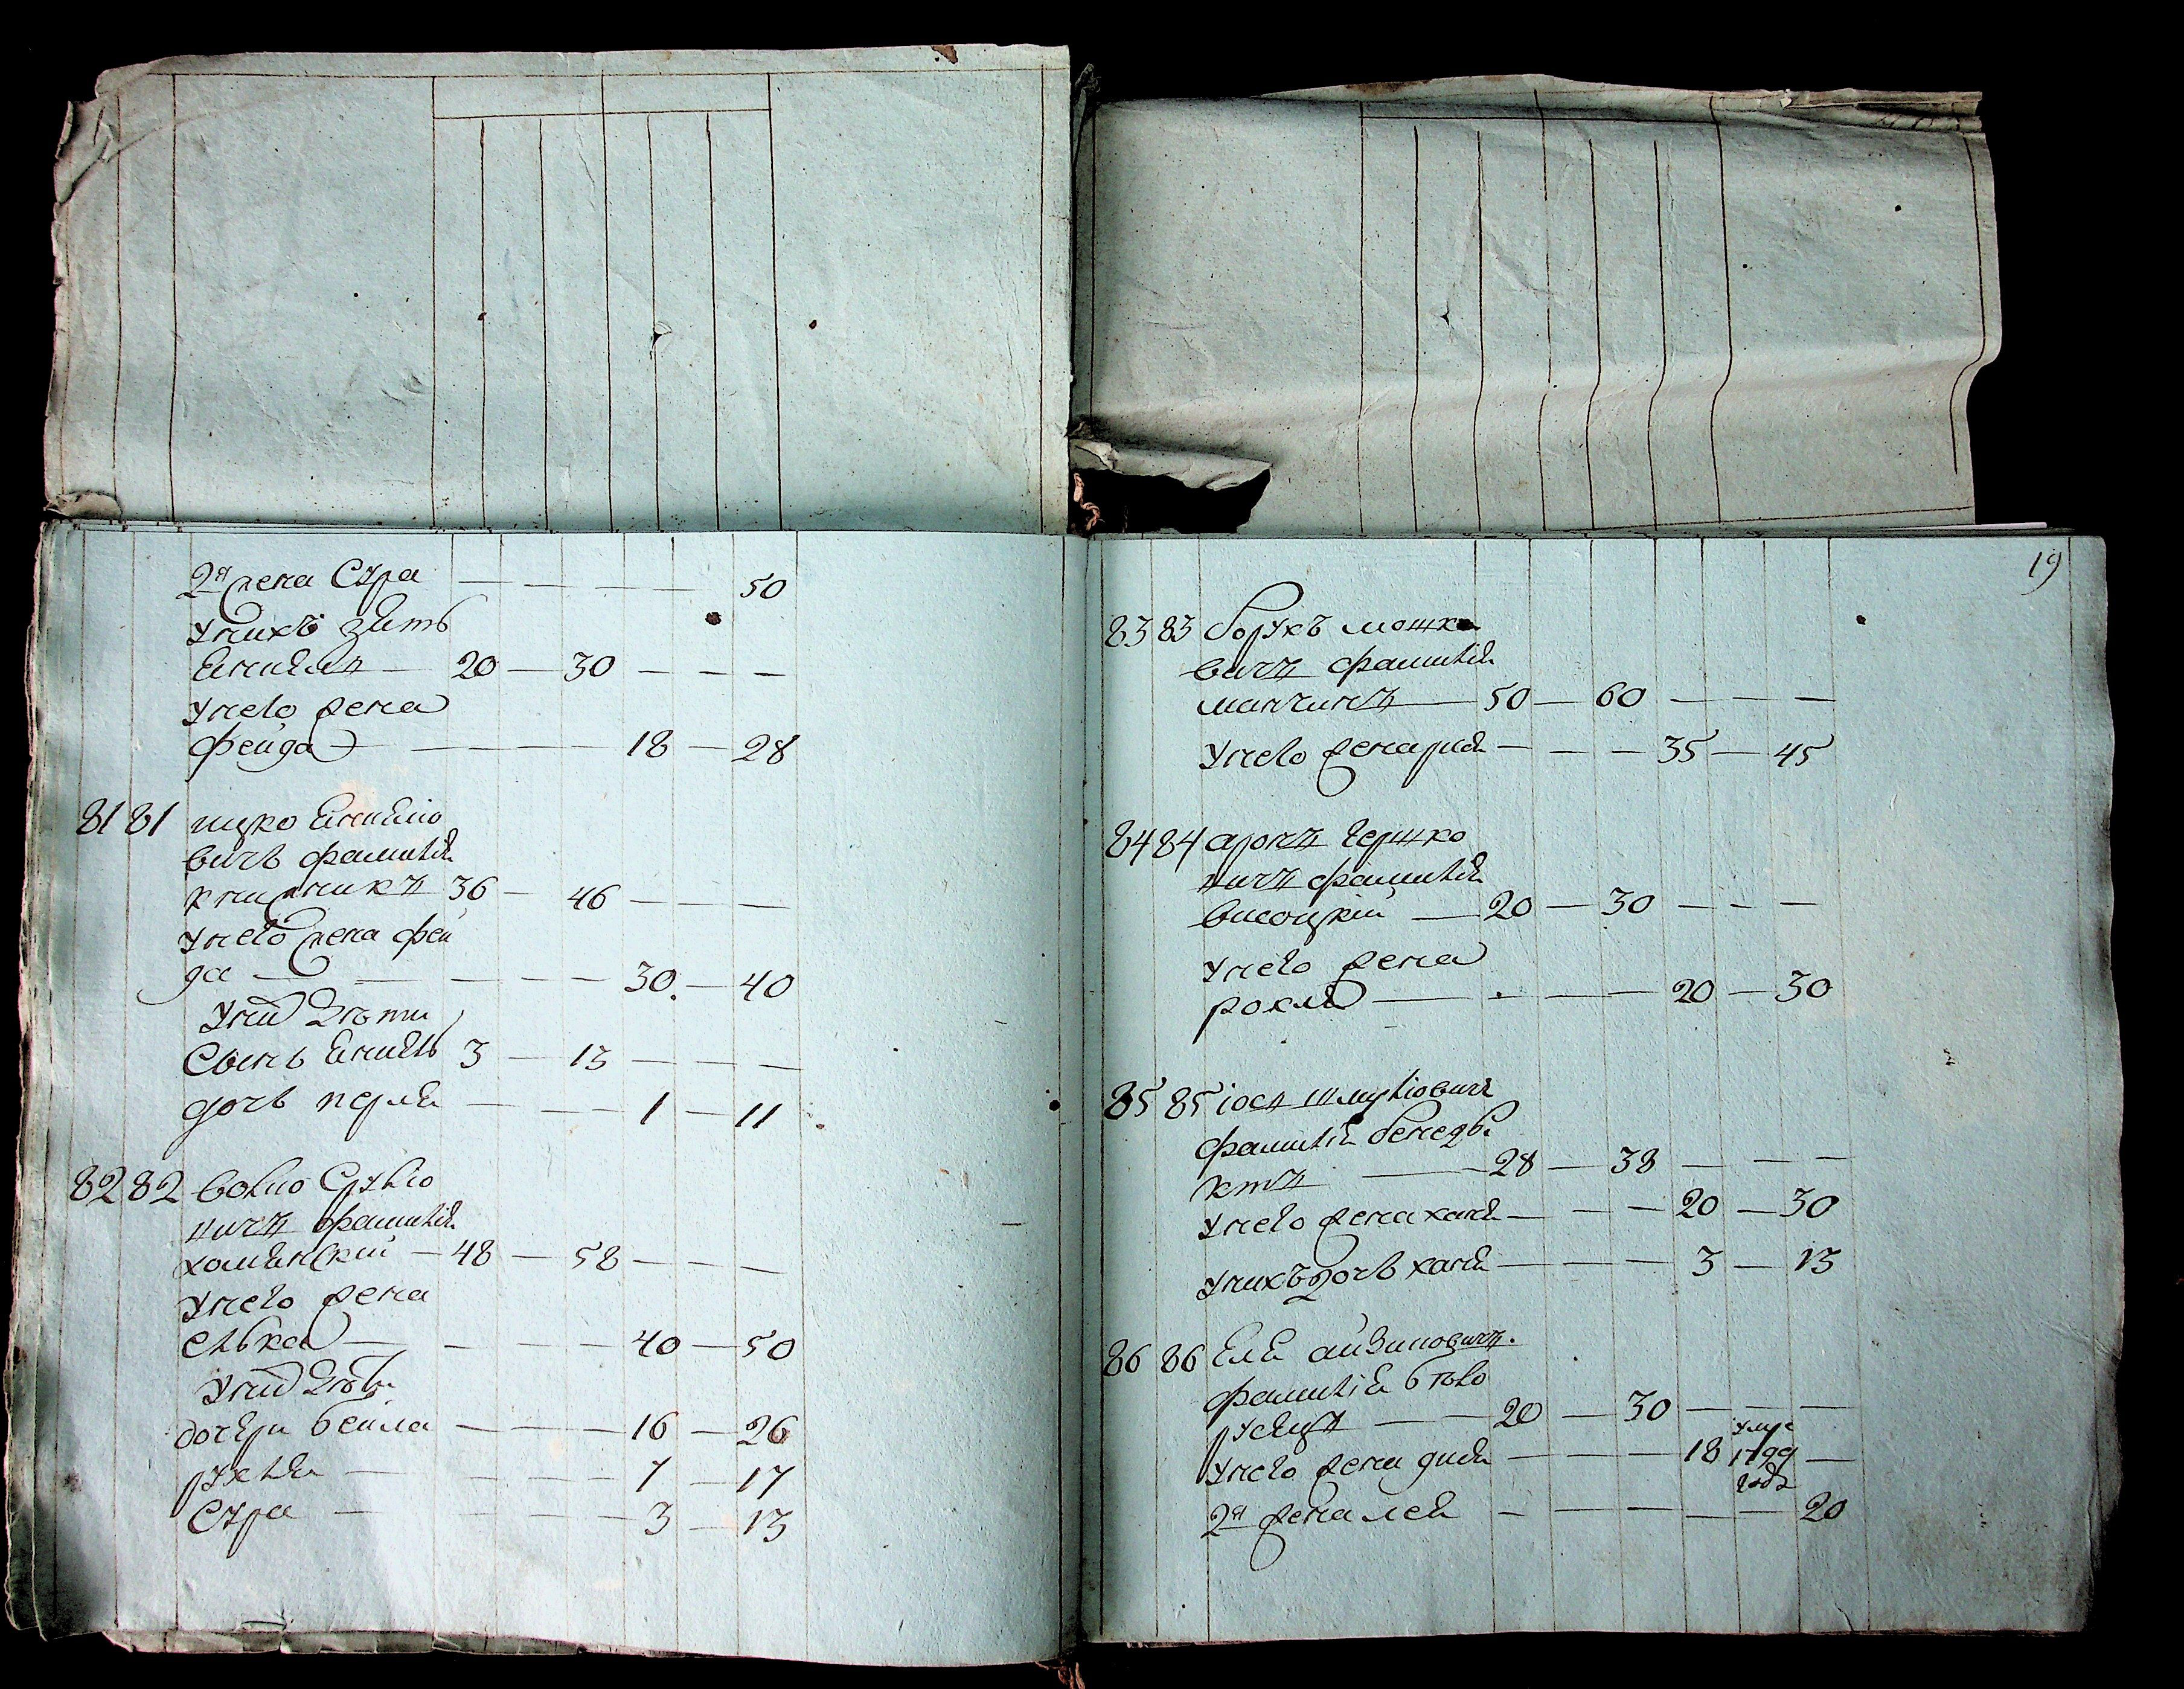 2я жена Сура — — — — — 50
У нихъ зять
— 20 — 30 — — —
У него жена
Фейда — — — — 18 — 28
81 81 ицко
вичъ фамилій
36 — 46 — — —
У него жена фей
да — — — — 30 — 40
У ний дѣти
Сынъ 3 — 13 — — —
дочь перля — — — 1 — 11
82 82 Волко Срулю
вичъ фамилій
48 — 58 — — —
У него жена
Елька — — — — 40 — 50
У ний дѣти
дочери бейла — — — 16 — 26
рухля — — — — 7 — 17
Сура — — — — 3 — 13
19
83 83 Борухъ мошко
вичъ фамилій
50 — 60 — — —
У него жена — — — 35 — 45
84 84 аронъ гершко
вичъ фамилій
висоцкій — 20 — 30 — — —
У него жена
рохля — — — — 20 — 30
85 85 іосъ шмулювичъ
фамилія бенеди
ктъ — 28 — 38 — — —
У него жена хая — — — 20 — 30
У нихъ дочь хая — — — 3 — 13
86 86 Еля айзиковичъ
фамилія бѣло
русецъ — 20 — 30 — — —
У него жена — — — 18 умре 1799 года —
2я жена лея — — — — — 20